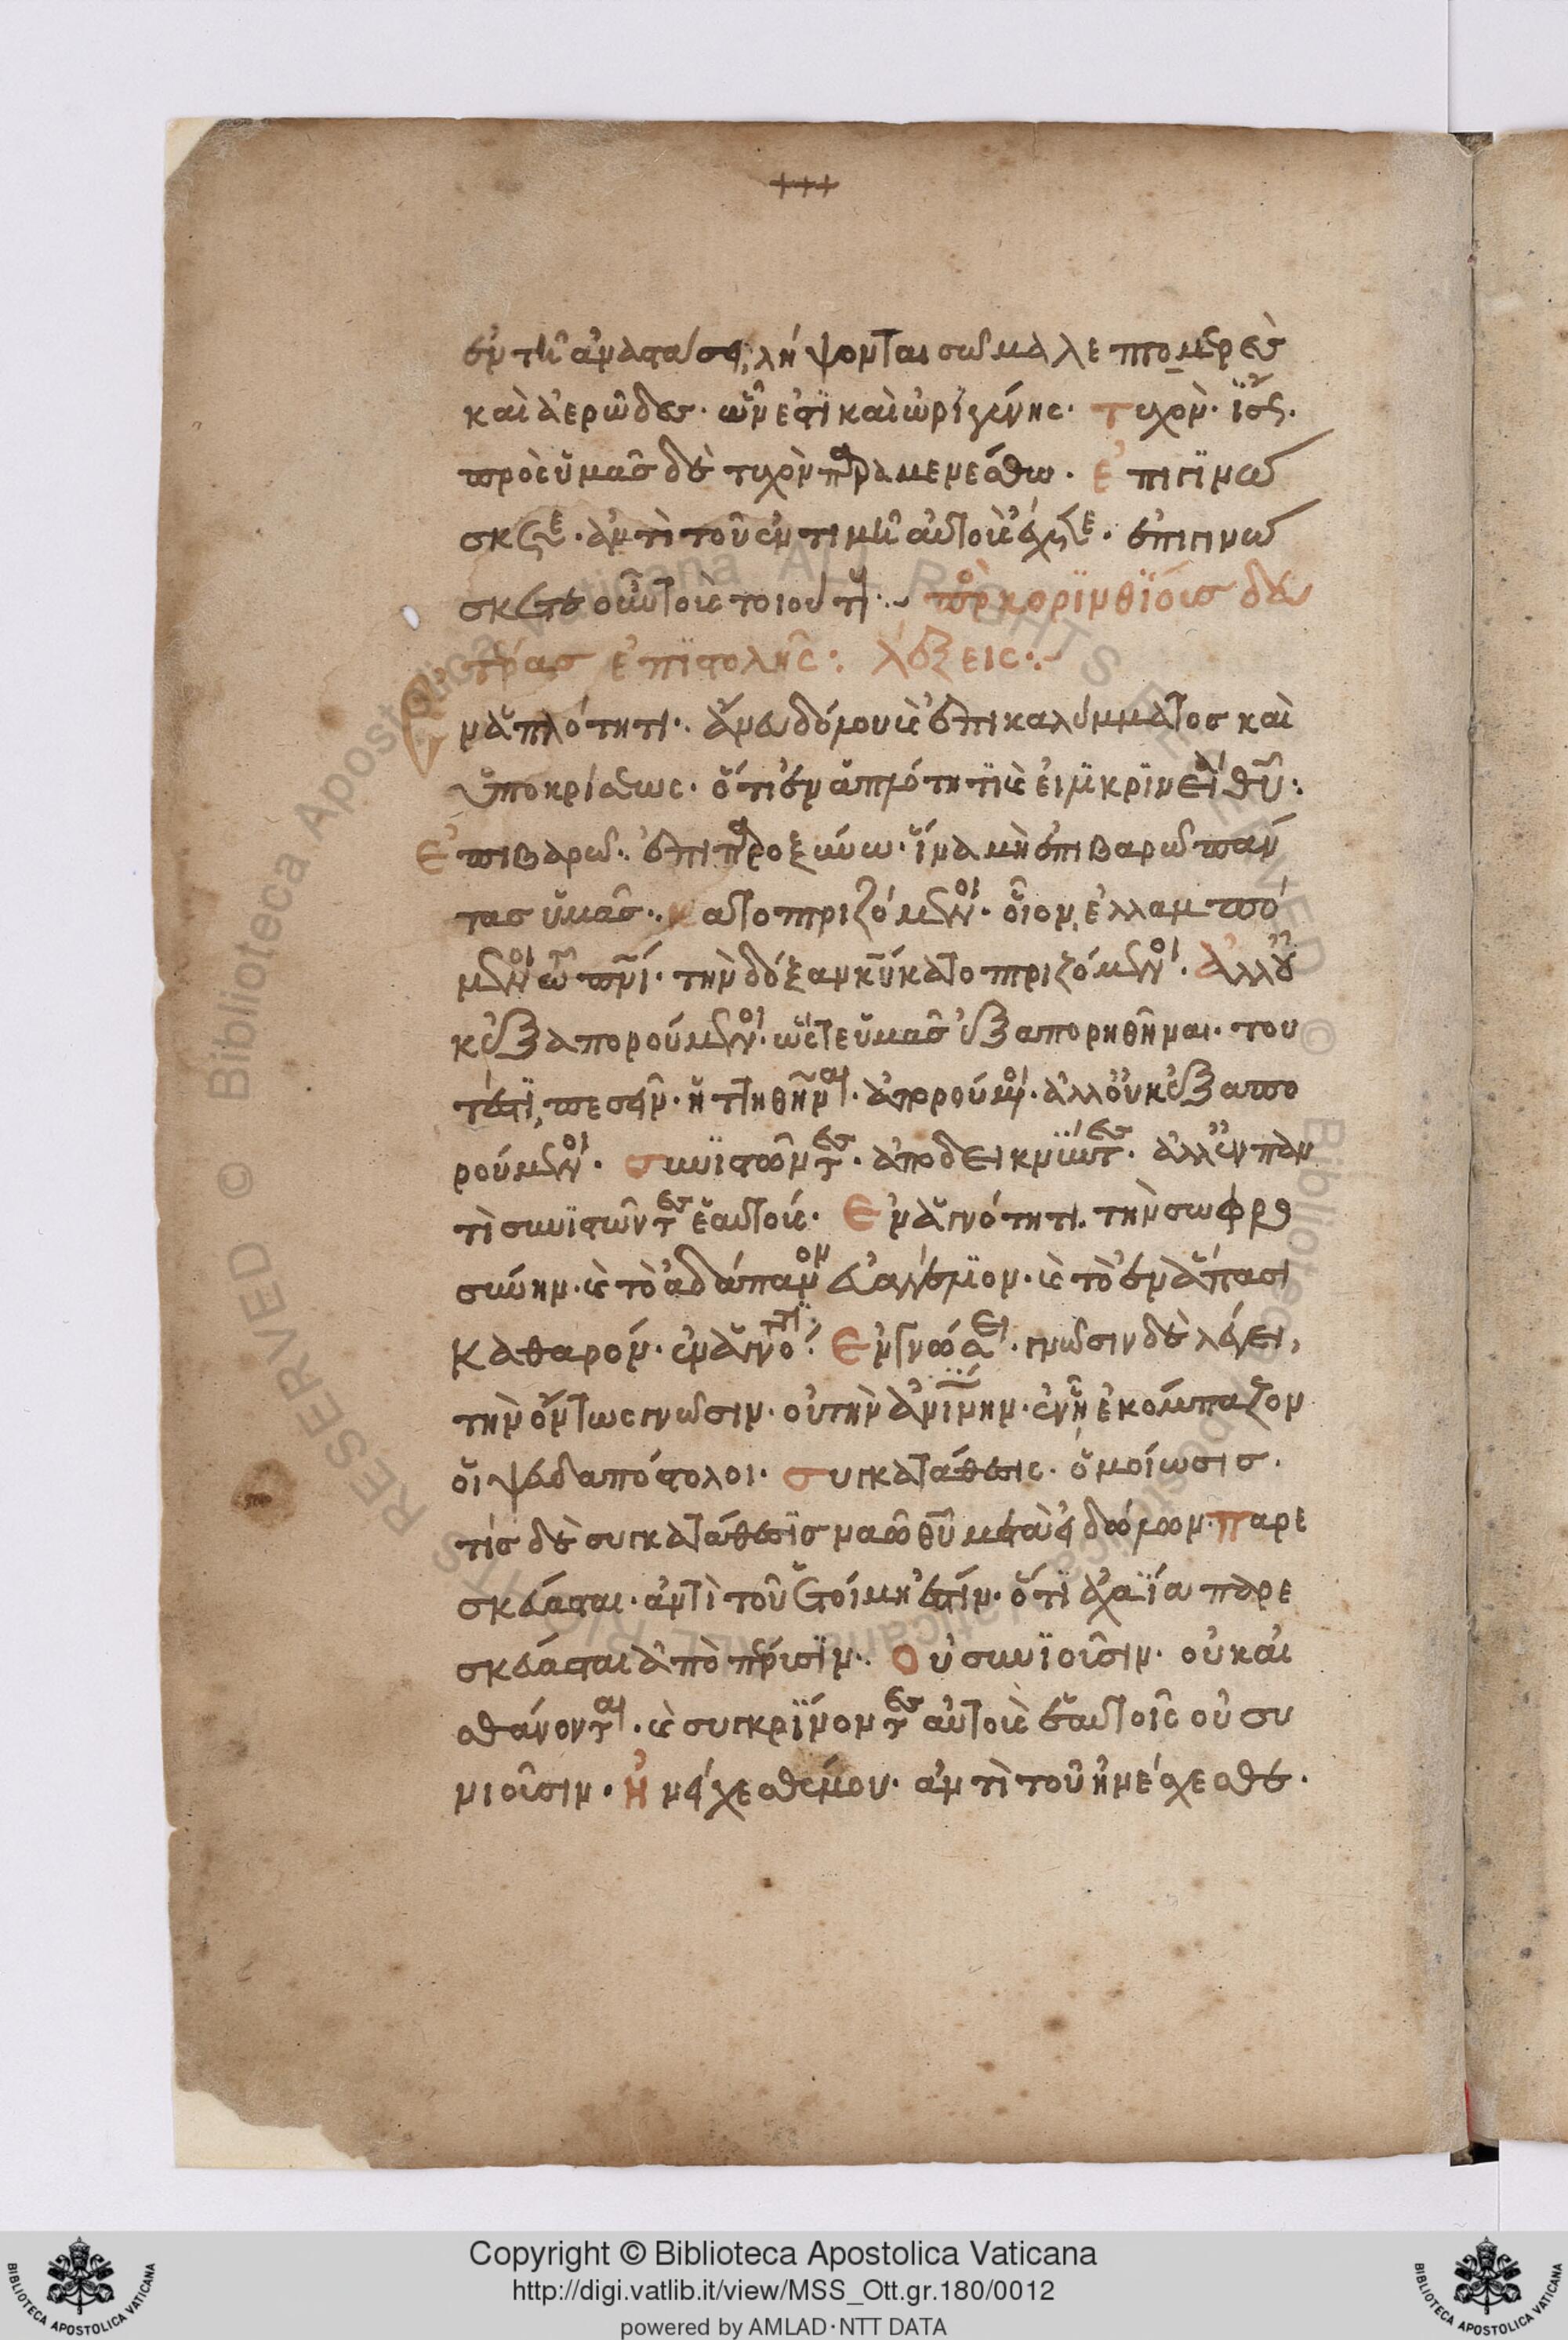 +++
ἐν τῆ ἀναστάσει, λήψονται σῶμα λεπτομερὲς
καὶ ἀερῶδες· ὥς φησι καὶ ὠριγένης· τυχὸν· ἴσως·
πρὸς ὑμᾶς δὲ τυχὸν παραμενέσθω· ἐπιγϊνώ
σκετε· ἀντὶ τοῦ ἐν τιμῆ αὐτοὺς ἔχετε· ἐπιγινώ
σκετε οὖν τοὺς τοιούτους·:~ πρὸς κορϊνθίους δευ
τέρας ἐπϊστολῆς: λέξεις:~
Ἐν ἁπλότητι· ἄνευ δόλου καὶ ἐπικαλύμματος καὶ
ὑποκρίσεως· ὅτι ἐν ἁπλότητϊ καὶ εἰλϊκρϊνείᾳ θυ:
Ἐπιβαρῶ· ἐπιπροξενύω· ἵνα μὴ ἐπιβαρῶ πάν
τας ὑμᾶς· κατοπτριζόμενοι· οἷον, ἐλλαμπό
μενοι τῶ πνι· τὴν δόξαν κυ κατοπτριζόμενοι· Ἀλλ οὐ
κ ἐξαπορούμενοι· ὥστε ὑμᾶς ἐξαπορηθῆναι· του
τέστϊ, πεσεῖν· ἢ ἡττηθῆναι· ἀπορούμενοι· ἀλλ οὐκ ἐξαπο
ρούμενοι· συνϊστῶντες· ἀποδεικνϊύντες· ἀλλ ἐν παν
τὶ συνϊστῶντες ἑαυτούς· Ἐν ἁγνότητι· τὴν σωφρο
σύνην· καὶ τὸ ἀδάπανον εὐαγγέλϊον· καὶ τὸ ἐν ἅπασι
καθαρόν· ἐν ἁγνότητϊ: Ἐν γνώσει· γνῶσιν δὲ λέγει,
τὴν ὄντως γνῶσιν· οὐ τὴν ἐκείνην· ἐν ἧ ἐκόμπαζον
οἱ ψευδαπόστολοι· συγκατάθεσις· ὁμοίωσις·
τίς δὲ συγκατάθεσϊς ναῶ θυ μετὰ εἰδώλων· παρε
σκεύασται· ἀντὶ τοῦ ἑτοίμη ἐστίν· ὅτϊ ἀχαϊα παρε
σκεύασται ἀπὸ πέρυσϊν· Οὐ συνϊοῦσιν· οὐκ αἰ
σθάνονται· καὶ συγκρϊνοντες αὐτοὺς ἑαυτοῖς οὐ συ
νιοῦσιν· ἠνείχεσθέ μου· ἀντὶ τοῦ ἠνέσχεσθε·
Copyright © Biblioteca Apostolica Vaticana
http://digi.vatlib.it/view/MSS_Ott.gr.180/0012
powered by AMLAD·NTT DATA